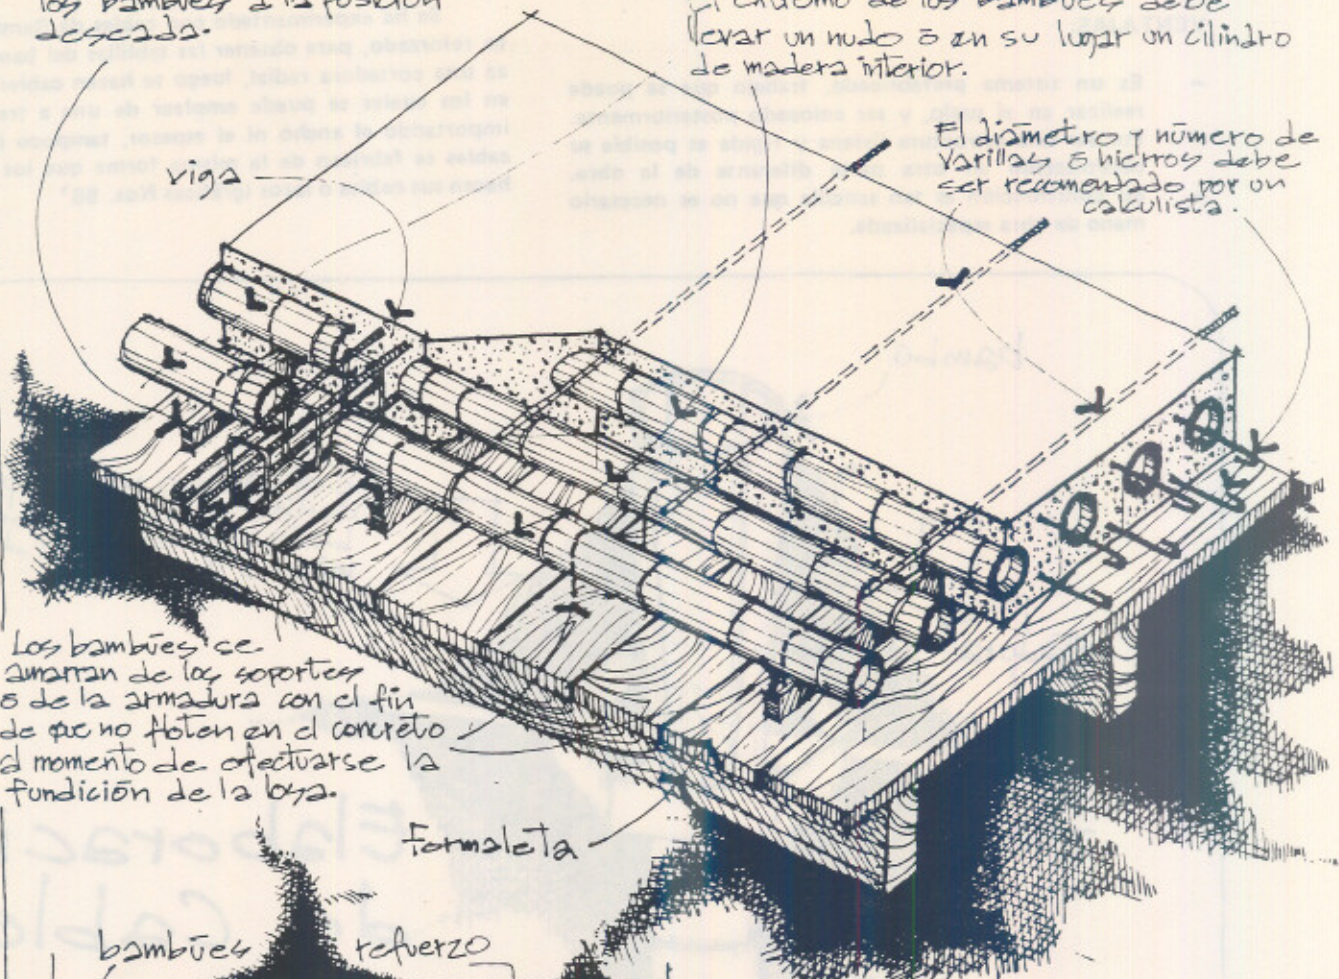 los bambúes a la posición
deseada.
El extremo de los bambúes debe
llevar un nudo ó en su lugar un cilindro
de madera interior.
El diámetro y número de
varillas ó hierros debe
ser recomendado por un
calculista
viga
Los bambúes se
amarran de los soportes
ó de la armadura con el fin
de que no floten en el concreto
al momento de efectuarse la
fundición de la losa.
Formaleta
bambúes refuerzo